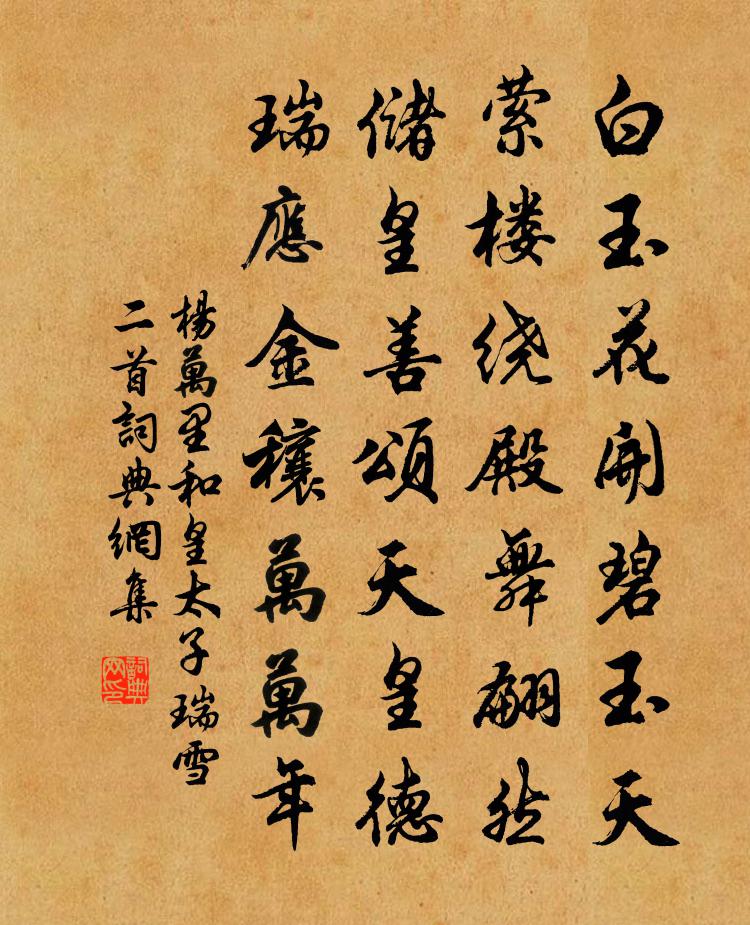 白玉花開碧玉天
萦楼绕殿舞翩然
儲皇善頌天皇德
瑞應金穰萬萬年
楊萬里和皇太子瑞雪
二首詞典網集
詞典网印